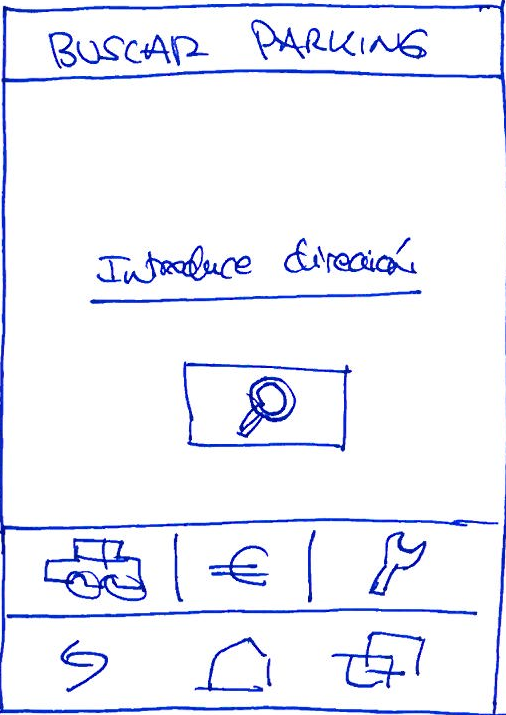 BUSCAR PARKING
Introduce dirección
€